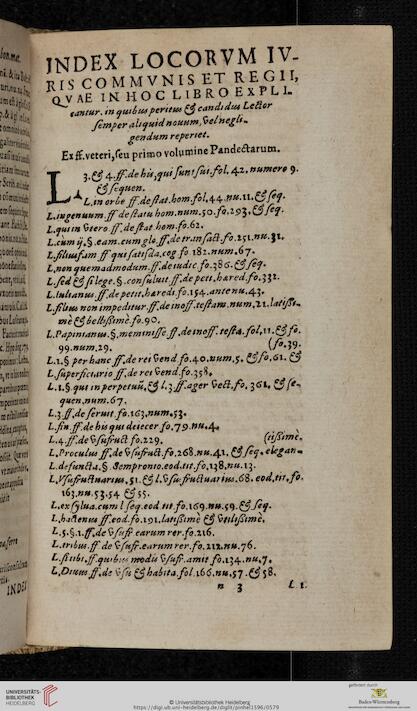 INDEX LOCORVM IV-
RIS COMMVNIS ET REGII,
QVAE IN HOC LIBRO EXPLI-
cantur. in quibus peritus & candidus Lector
semper aliquid nouum, vel negli-
gendum reperiet.
Ex ff. veteri, seu primo volumine Pandectarum.
L. 3. & 4. ff. de his, qui sunt sui. fol. 42. numero 9.
& sequen.
L. in orbe ff. de stat. hom. fol. 44. nu. 11. & seq.
L. ingenuum. ff de statu hom. num. 50. fo. 293. & seq.
L. qui in vtero. ff. de stat hom. fo. 62.
L. cum ij. §. eam. cum glo. ff. de transact. fo. 251. nu. 31.
L. filiusfam ff qui satisda. cog fo 182. num. 67.
L. non quemadmodum. ff. de iudic. fo. 386. & seq.
L. sed & si lege. §. consuluit. ff. de peti. hared. fo. 332.
L. iulianus ff. de petit. haredi. fo. 154. ante nu. 43.
L. filius non impeditur. ff. de inoff. testam. num. 21. latissi-
mè & bellissimè. fo. 90.
L. Papinianus. §. meminisse ff. de inoff. testa. fol. 11. & fo.
99. num. 29. (fo. 39.
L. 1. § per hanc ff. de rei vend. fo. 40. num. 5. & fo. 61. &
L. superficiario ff. de rei vend. fo. 358.
L. 1. §. qui in perpetuũ, & l. 3. ff. ager vect. fo. 361. & se-
quen. num. 67.
L. 3. ff. de seruit. fo. 163. num. 53.
L. fin. ff. de his qui deiecer. fo. 79. nu. 4.
L. 4. ff. de vsufruct fo. 229. (tissimè.
L. Proculus ff. de vsufruct. fo. 268. nu. 41. & seq. elegan-
L. defuncta. §. Sempronio. eod. tit. fo. 138. nu. 13.
L. Vsufructuarius. 51. & l. vsufructuarius. 68. eod. tit. fo.
163. nu. 53. 54 & 55.
L. ex sylua. cum l seq. eod tit fo. 169. nu. 59. & seq.
L. hactenus ff. eod. fo. 191. latissimè & vtilissimè.
L. 5. §. 1. ff. de vsufr earum rer. fo. 216.
L. tribus. ff de vsufr. earum rer. fo. 212. nu. 76.
L. si tibi. ff. quibus modis vsufr. amit fo. 134. nu. 7.
L. Diuus ff. de vsu & habita. fol. 166. nu. 57. & 58.
n 3 L. 1.
UNIVERSITÄTS-
BIBLIOTHEK
HEIDELBERG
© Universitätsbibliothek Heidelberg
https://digi.ub.uni-heidelberg.de/diglit/pinhel1596/0579
gefördert durch
Baden-Württemberg